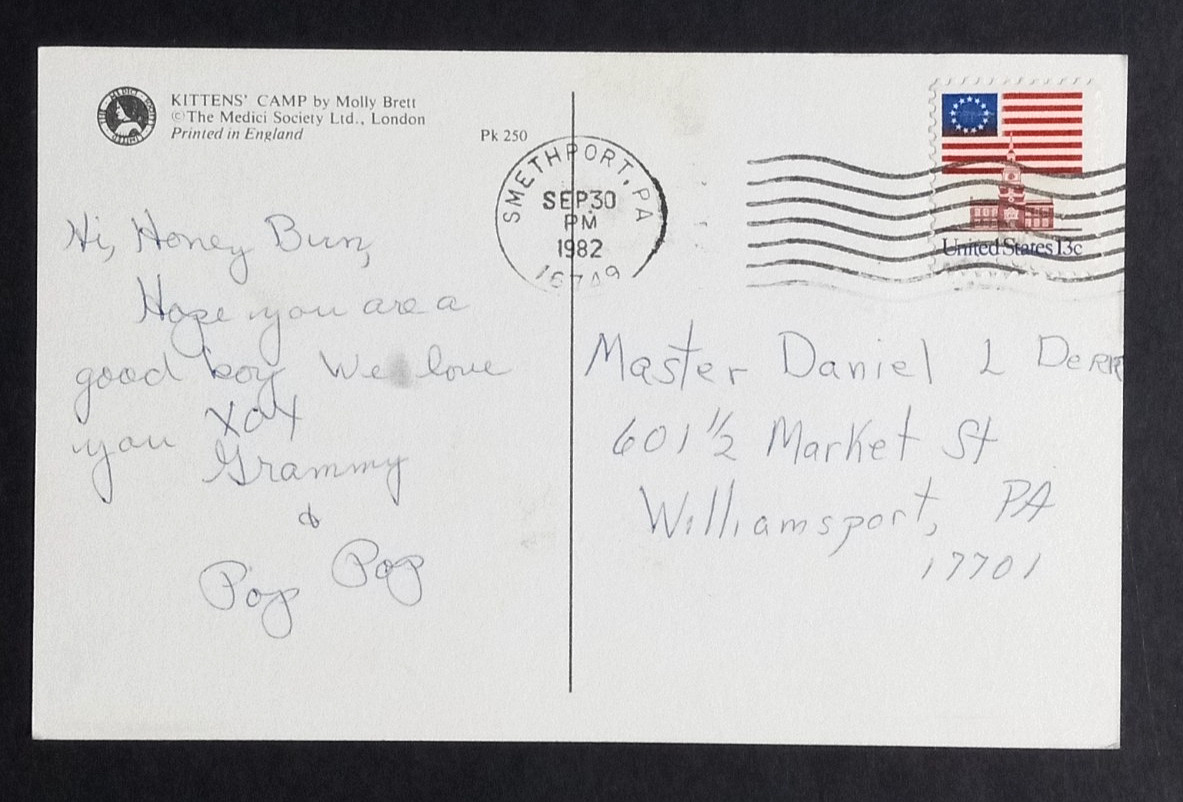 KITTENS' CAMP by Molly Brett
©The Medici Society Ltd., London
Printed in England
Pk 250
SMETHPORT, PA
SEP 30
PM
1982
16749
United States 13c
Hi, Honey Bun,
Hope you are a
good boy We love
you XOX
Grammy
&
Pop Pop
Master Daniel L Derr
601 1/2 Market St
Williamsport, PA
17701